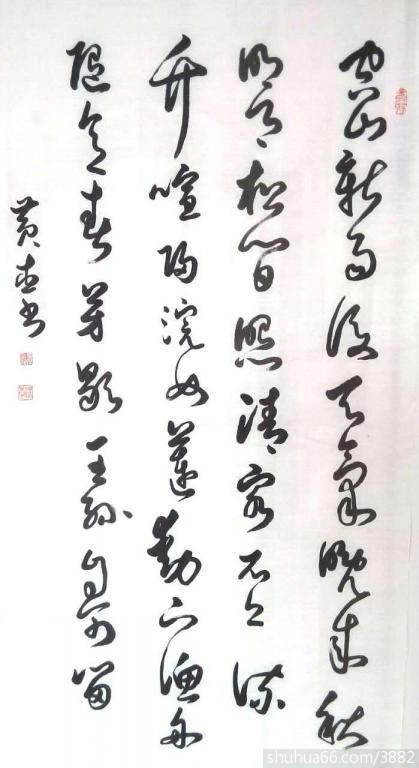 空山新雨後天氣晚来秋
明月松間照清泉石上流
竹喧歸浣女蓮動下漁舟
随意春芳歇王孫自可留
黄 书
shuhua66.com/3882